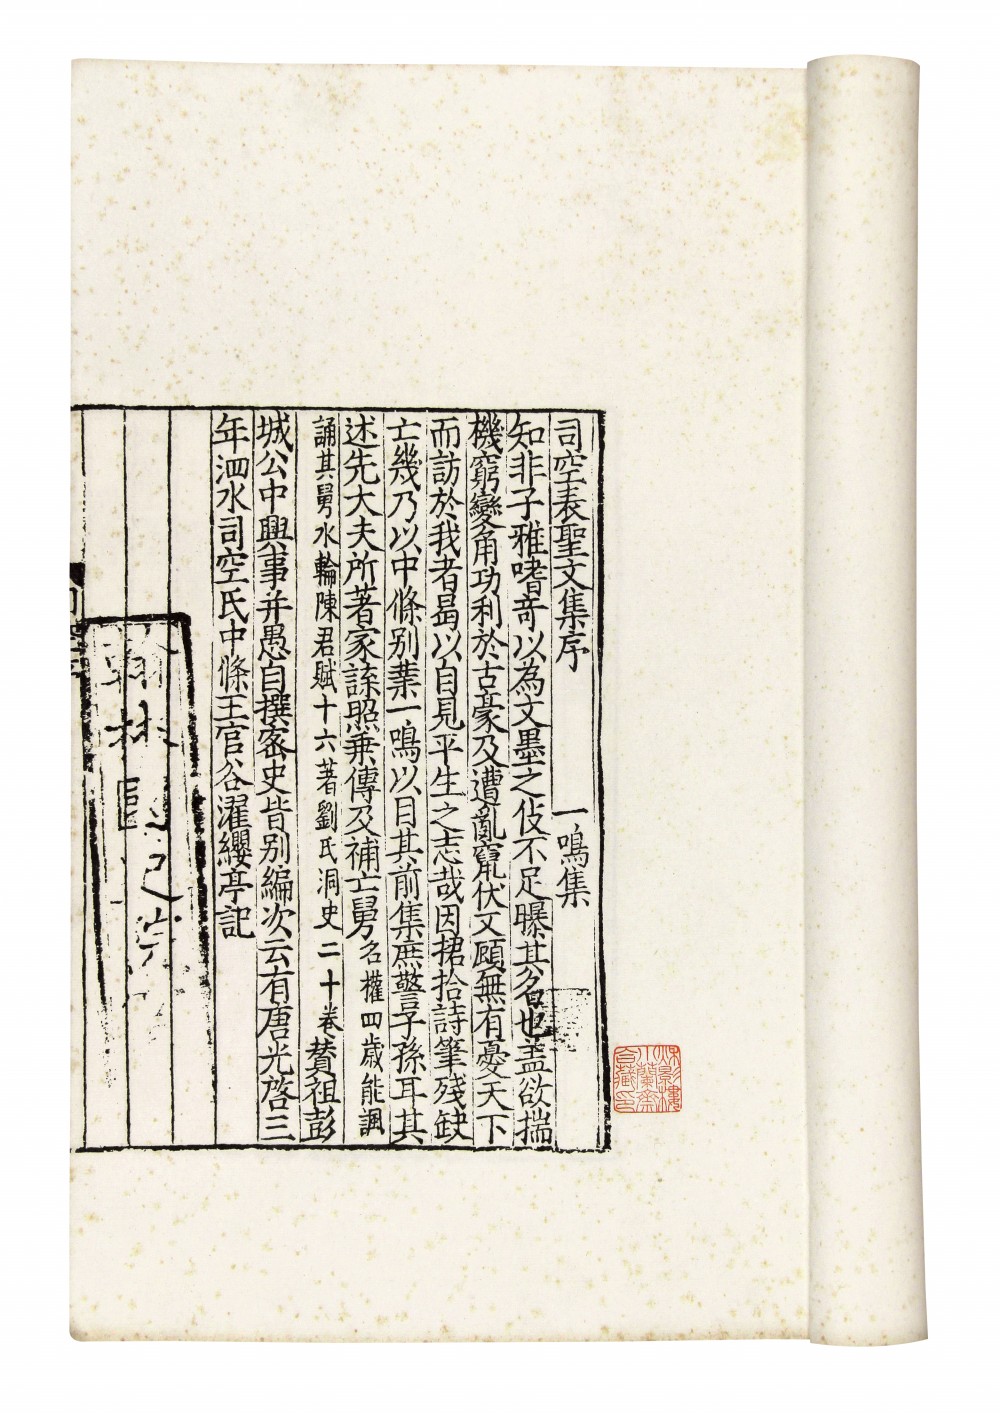 司空表聖文集序　一鳴集
知非子雅嗜竒以為文墨之伎不足曝其名也盖欲揣
機窮變角功利於古豪及遭亂竄伏又顧無有憂天下
而訪於我者曷以自見平生之志哉因捃拾詩筆殘缺
亡幾乃以中條别業一鳴以目其前集庶警子孫耳其
述先大夫所著家諜照乗傳及補亡舅名權四歲能諷
誦其舅水輪陳君賦十六著劉氏洞史二十卷賛祖彭
城公中興事并愚自撰宻史皆别編次云有唐光啓三
年泗水司空氏中條王官谷濯纓亭記
翰林國